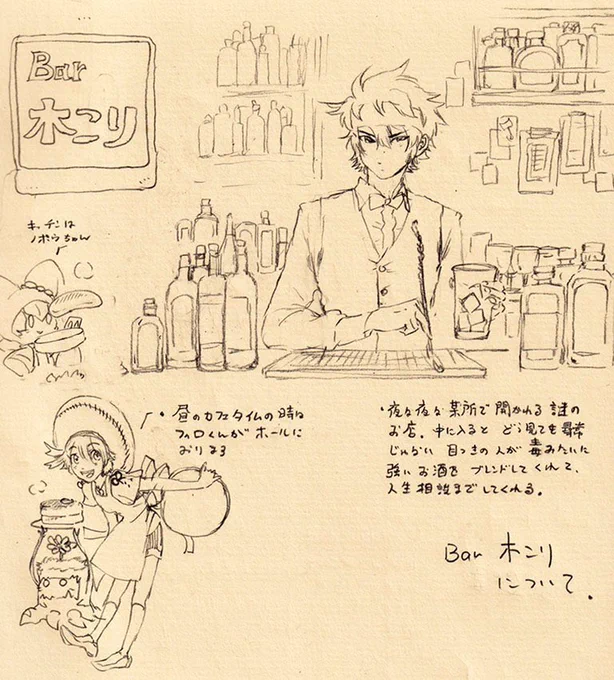 Bar
木こり
キッチンは
ノポウちゃん
・昼のカフェタイムの時は
フィロくんがホールに
おります
・夜な夜な某所で開かれる謎の
お店。中に入ると どう見ても尋常
じゃない 目つきの人が 毒みたいに
強いお酒を ブレンドしてくれて、
人生相談までしてくれる。
Bar 木こり
について.